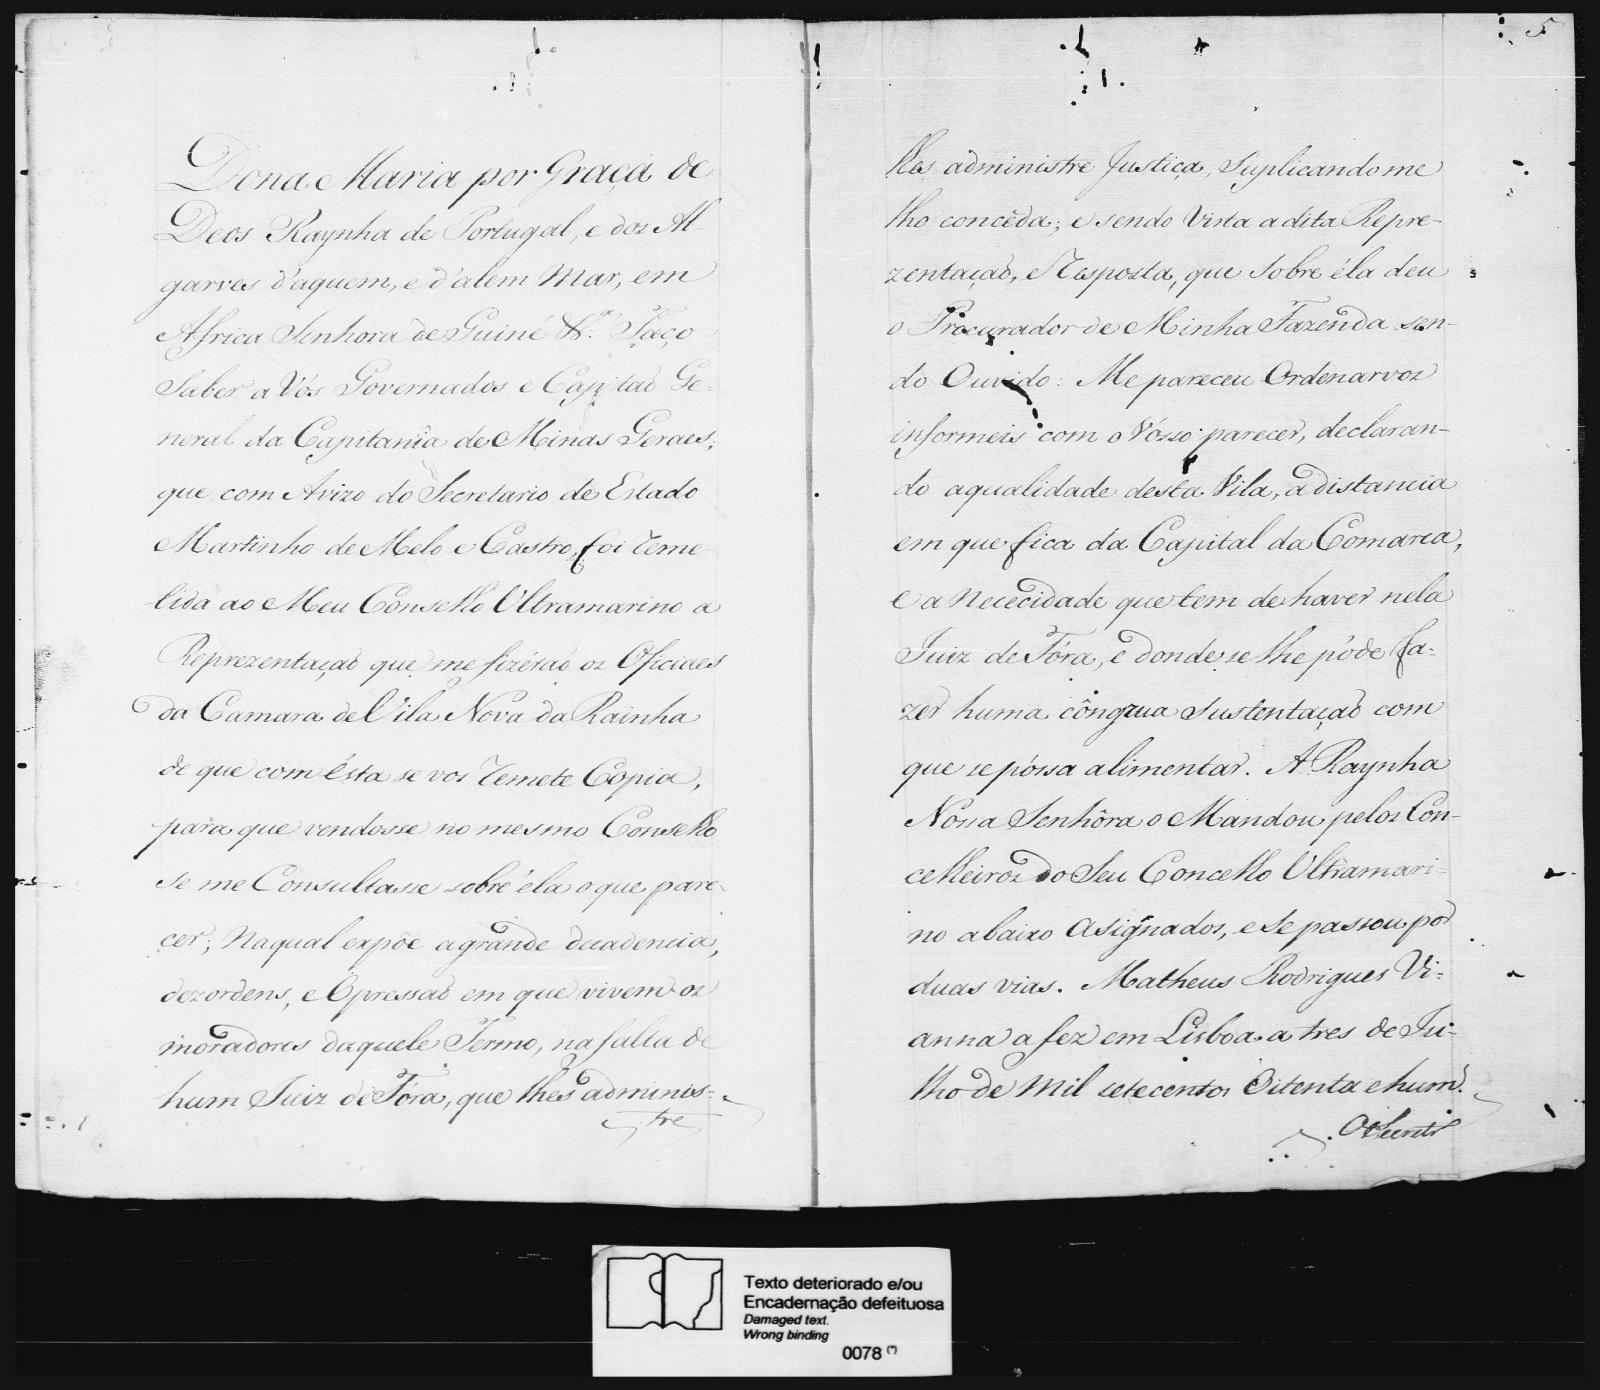 Dona Maria por Graça de
Deos Raynha de Portugal, e dos Al-
garves d'aquem, e d'alem Mar, em
Africa Senhora de Guiné &.ª Faço
Saber a Vós Governador e Capitaõ Ge-
neral da Capitanîa de Minas Geraes;
que com Avizo do Secretario de Estado
Martinho de Melo e Castro, foi Reme-
tida ao Meu Conselho Ultramarino a
Reprezentaçaõ que me fizéraõ os Oficiaes
da Camara de Vila Nova da Rainha
de que com Esta se vos Remete Cópia,
para que vendosse no mesmo Conselho
se me Consultasse sobre éla o que pare-
cer; Naqual expõe agrande decadencia,
dezordens, e Opressaõ em que vivem os
moradores daquele Termo, na falta de
hum Juiz de Fóra, que lhes adminis-
tre
5
lhes administre Justiça, Suplicandome
lho concêda; e sendo Vista a dita Repre-
zentaçaõ, e Resposta, que Sobre éla deu
o Procurador de Minha Fazenda sen-
do Ouvido: Me pareceu Ordenarvos
informeis com o Vósso parecer, declaran-
do aqualidade desta Vila, a distancia
em que fica da Capital da Comarca,
e a Nececidade que tem de haver nela
Juiz de Fóra, e donde se lhe póde fa-
zer huma côngrua Sustentaçaõ com
que se póssa alimentar. A Raynha
Nossa Senhôra o Mandou pelos Con-
celheiros do Seu Concelho Ultramari-
no abaixo Asignados, e Se passou por
duas vias. Matheus Rodrigues Vi-
anna a fez em Lisboa a tres de Ju-
lho de Mil setecentos Oitenta e hum.
Texto deteriorado e/ou
Encadernação defeituosa
Damaged text.
Wrong binding
0078 (*)